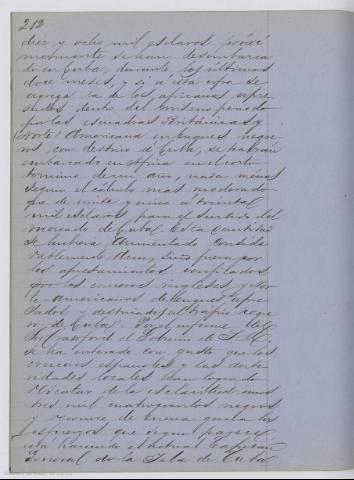 212
diez y ocho mil esclavos próxi
mamente se han desembarca
do en Cuba, durante los últimos
doce meses, y si á esta cifra se
agrega la de los africanos apre
sados dentro del mismo periodo
por las escuadras Británicas y
Norte Americana en buques negre
ros con destino á Cuba, se habrán
embarcado en Africa en el corto
termino de un año, nada menos
segun el cálculo mas moderado
que de veinte y cinco á treinta
mil esclavos para el surtido del
mercado de Cuba. Esta cantidad
se hubiera aumentado conside
rablemente aun, sino fuera por
los apresamientos verificados
por los cruceros ingleses y Nor
te americanos de buques
y destinados al trafico negre
ro de Cuba. Por el informe del
Sr. Crawford el Gobierno de S.M.
se ha enterado con gusto que los
cruceros españoles y las auto
ridades locales han logrado
rescatar de la esclavitud unos
tres mil cuatrocientos negros
y conoce de buena gana los
esfuerzos que segun parece
está haciendo el actual Capitan
General de la Isla de Cuba